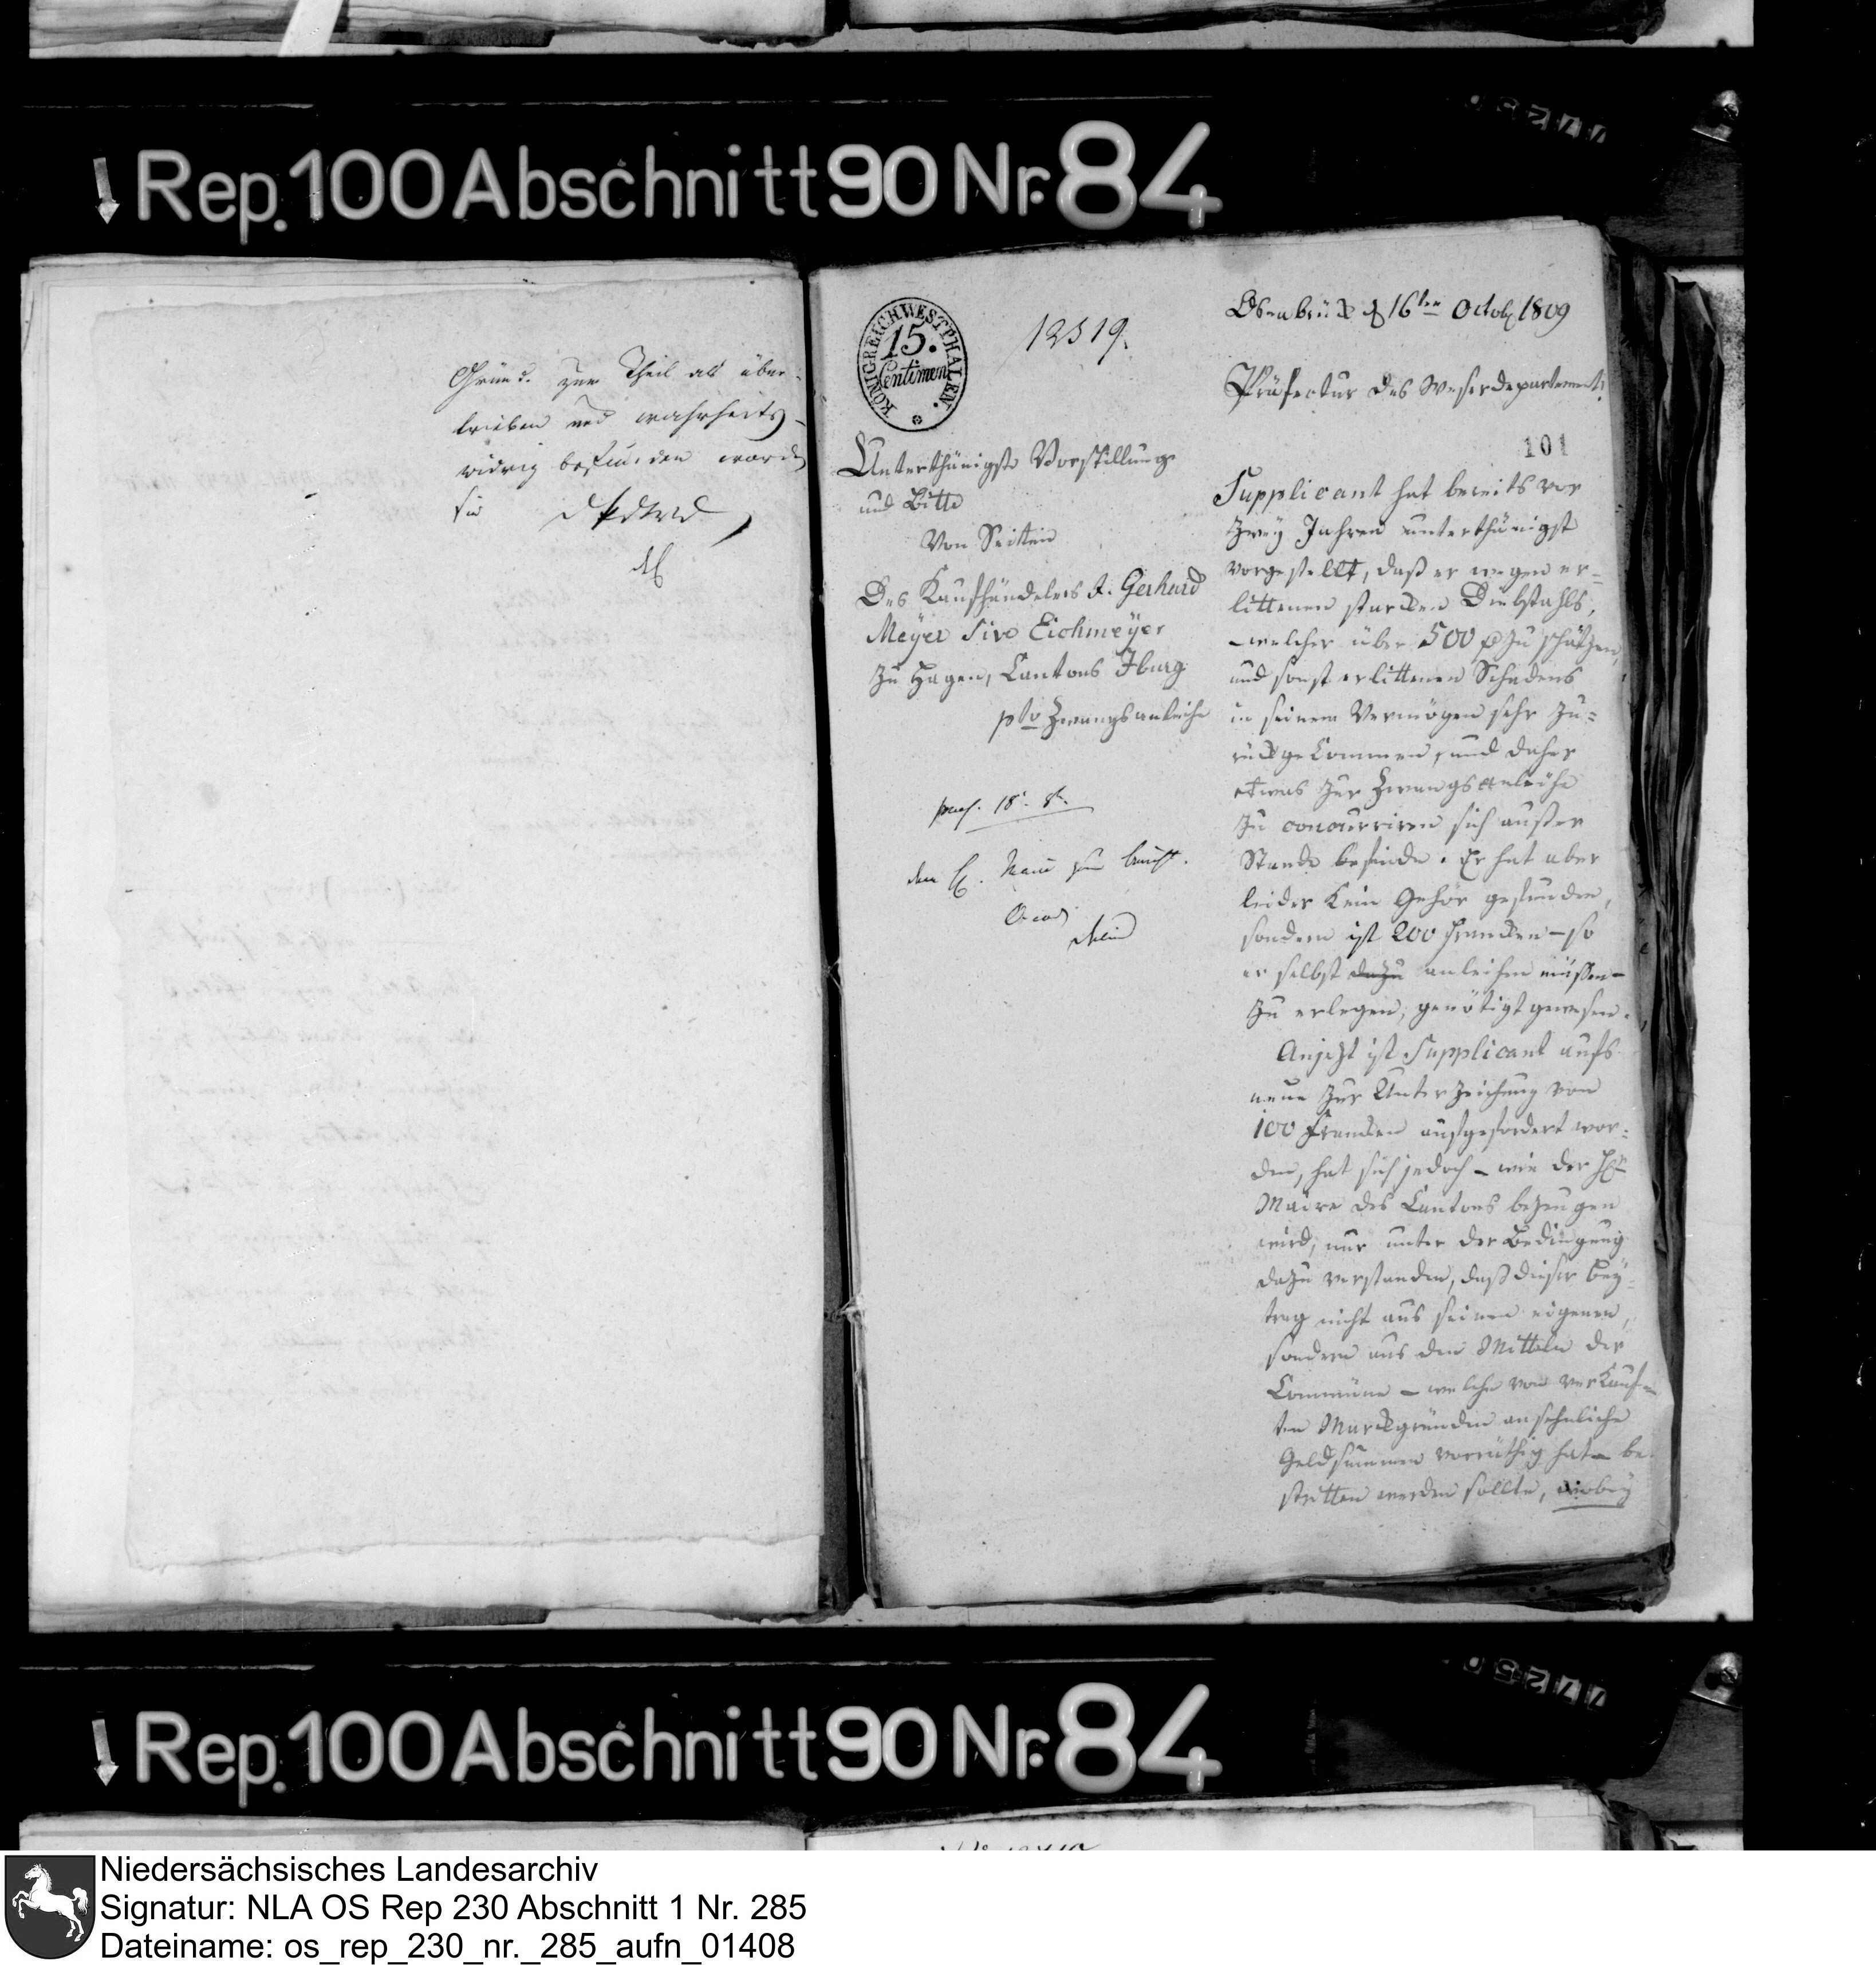 Rep. 100 Abschnitt 90 Nr. 84
Gründe zum Theil als über-
trieben und wahrheits-
widrig befunden worden
sind
KÖNIGREICH WESTPHALEN.
15.
Centimen
12519.
Osnabrück d 16ten Octobr 1809
Präfectur des Weserdepartements.
101
Unterthänigste Vorstellung
und Bitte
Von Seitten
Des Kaufhändelers J. Gerhard
Meyer sive Eichmeyer
zu Hagen, Cantons Iburg
pto Zwangsanleihe
praes. 18
den
Supplicant hat bereits vor
zwey Jahren unterthänigst
vorgestellt, daß er wegen er=
littenen starken Diebstahls,
– welcher über 500 zu schätzen,
und sonst erlittenen Schadens
in seinem Vermögen sehr zu=
rückgekommen, und daher
etwas zur Zwangsanleihe
zu concurriren sich außer
Stande befinde. Er hat aber
leider kein Gehör gefunden,
sondern ist 200 Francken – so
er selbst dazu anleihen müssen –
zu erlegen, genötigt gewesen.
Anjezt ist Supplicant aufs
neue zur Unterzeichnung von
100 Francken aufgefordert wor=
den, hat sich jedoch – wie der Hr
Maire des Cantons bezeugen
wird, nur unter der Bedingung
dazu verstanden, daß dieser Bey=
trag nicht aus seinen eigenen,
sondern aus den Mitteln der
Commüne – welche von verkauf=
ten Markgründen ansehnliche
Geldsummen vorräthig hat – be=
stritten werden sollte, wobey
Rep. 100 Abschnitt 90 Nr. 84
Niedersächsisches Landesarchiv
Signatur: NLA OS Rep 230 Abschnitt 1 Nr. 285
Dateiname: os_rep_230_nr._285_aufn_01408